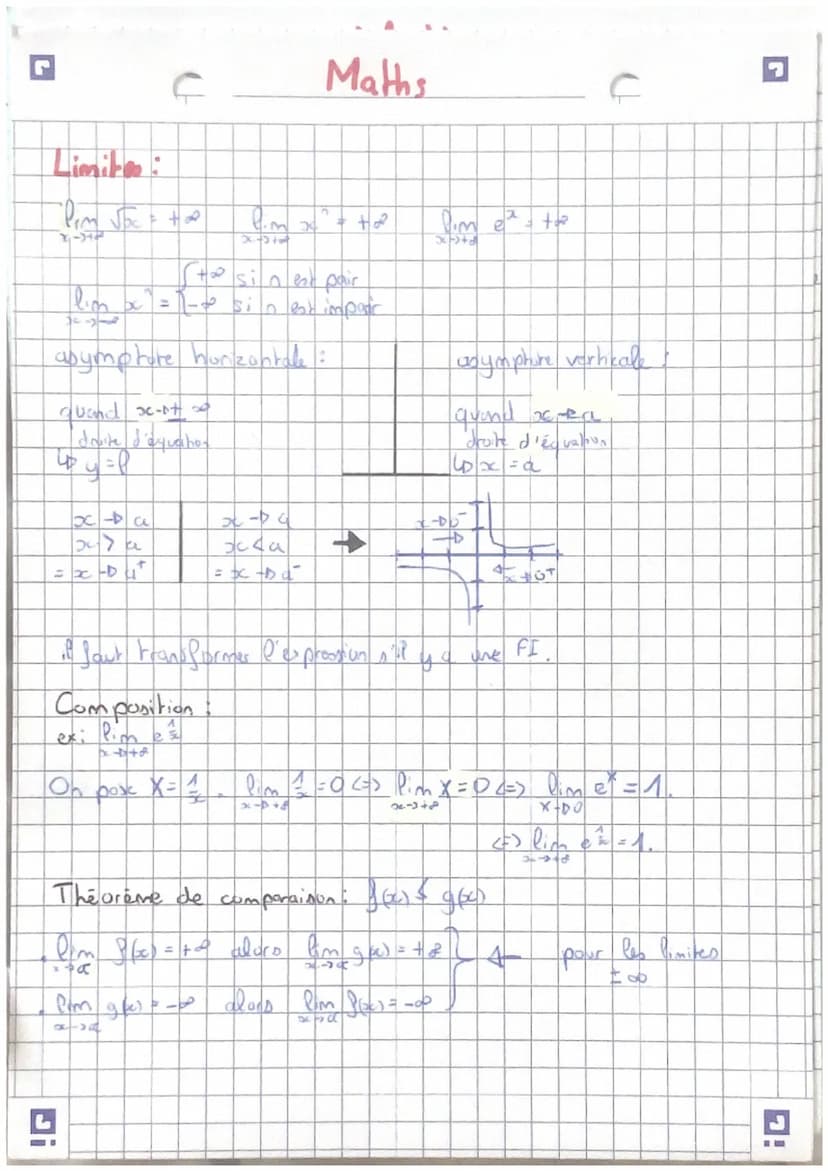 Maths
Limites :
lim x→+∞ √x = +∞ lim x→+∞ xⁿ = +∞ lim x→+∞ eˣ = +∞
lim x→-∞ xⁿ = { +∞ si n est pair
-∞ si n est impair
asymptote horizontale : asymptote verticale :
quand x→± ∞ quand x→a
droite d'équation droite d'équation
↳ y = l ↳ x = a
x → a x → a → x→0⁻
x > a x < a
= x → a⁺ = x → a⁻ x→0⁺
il faut transformer l'expression s'il y a une FI.
Composition :
ex: lim x→+∞ e^(1/x)
On pose X = 1/x . lim x→+∞ 1/x = 0 <=> lim x→+∞ X = 0 <=> lim X→0 eˣ = 1.
<=> lim x→+∞ e^(1/x) = 1.
Théorème de comparaison : f(x) ≤ g(x)
. lim x→α f(x) = +∞ alors lim x→α g(x) = +∞ } ← pour les limites
± ∞
. lim x→α g(x) = -∞ alors lim x→α f(x) = -∞